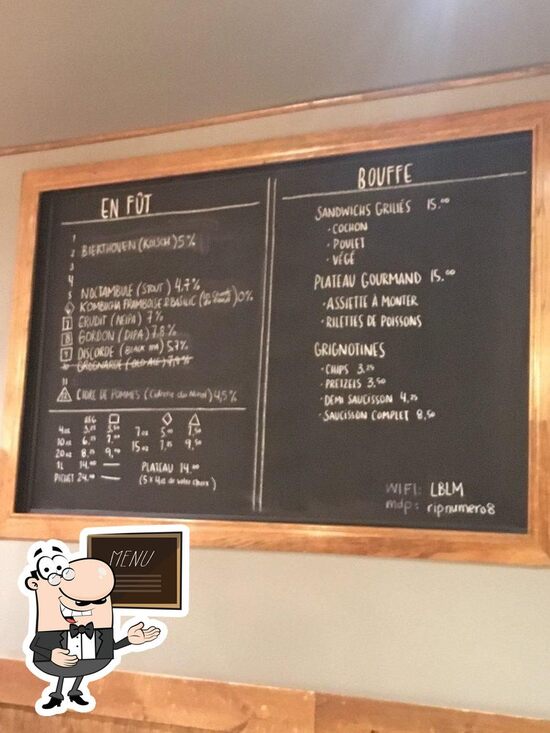 EN FÛT
1
2 BIERTHOVEN (KÖLSCH) 5%
3
4
5 NOCTAMBULE (STOUT) 4.7%
KOMBUCHA FRAMBOISE & BASILIC 0%
7 ERUDIT (NEIPA) 7%
8 GORDON (DIPA) 7,8%
9 DISCORDE (BLACK IPA) 5.7%
10 GROGNARDE (OLD ALE)
11
12 CIDRE DE POMMES (Cidrerie du Minot) 4,5%
4oz 3,25
10oz 6,25
7oz
20oz 8,75 9,50
15oz
1L 14.00
PICHET 24.00
PLATEAU 14.00
(5 x 4oz de votre choix)
BOUFFE
SANDWICHS GRILLÉS 15.00
· COCHON
· POULET
· VÉGÉ
PLATEAU GOURMAND 15.00
· ASSIETTE À MONTER
· RILETTES DE POISSONS
GRIGNOTINES
· CHIPS 3.25
· PRETZELS 3.50
· DEMI SAUCISSON 4,75
· SAUCISSON COMPLET 8,50
WIFI: LBLM
mdp: ripnumero8
MENU